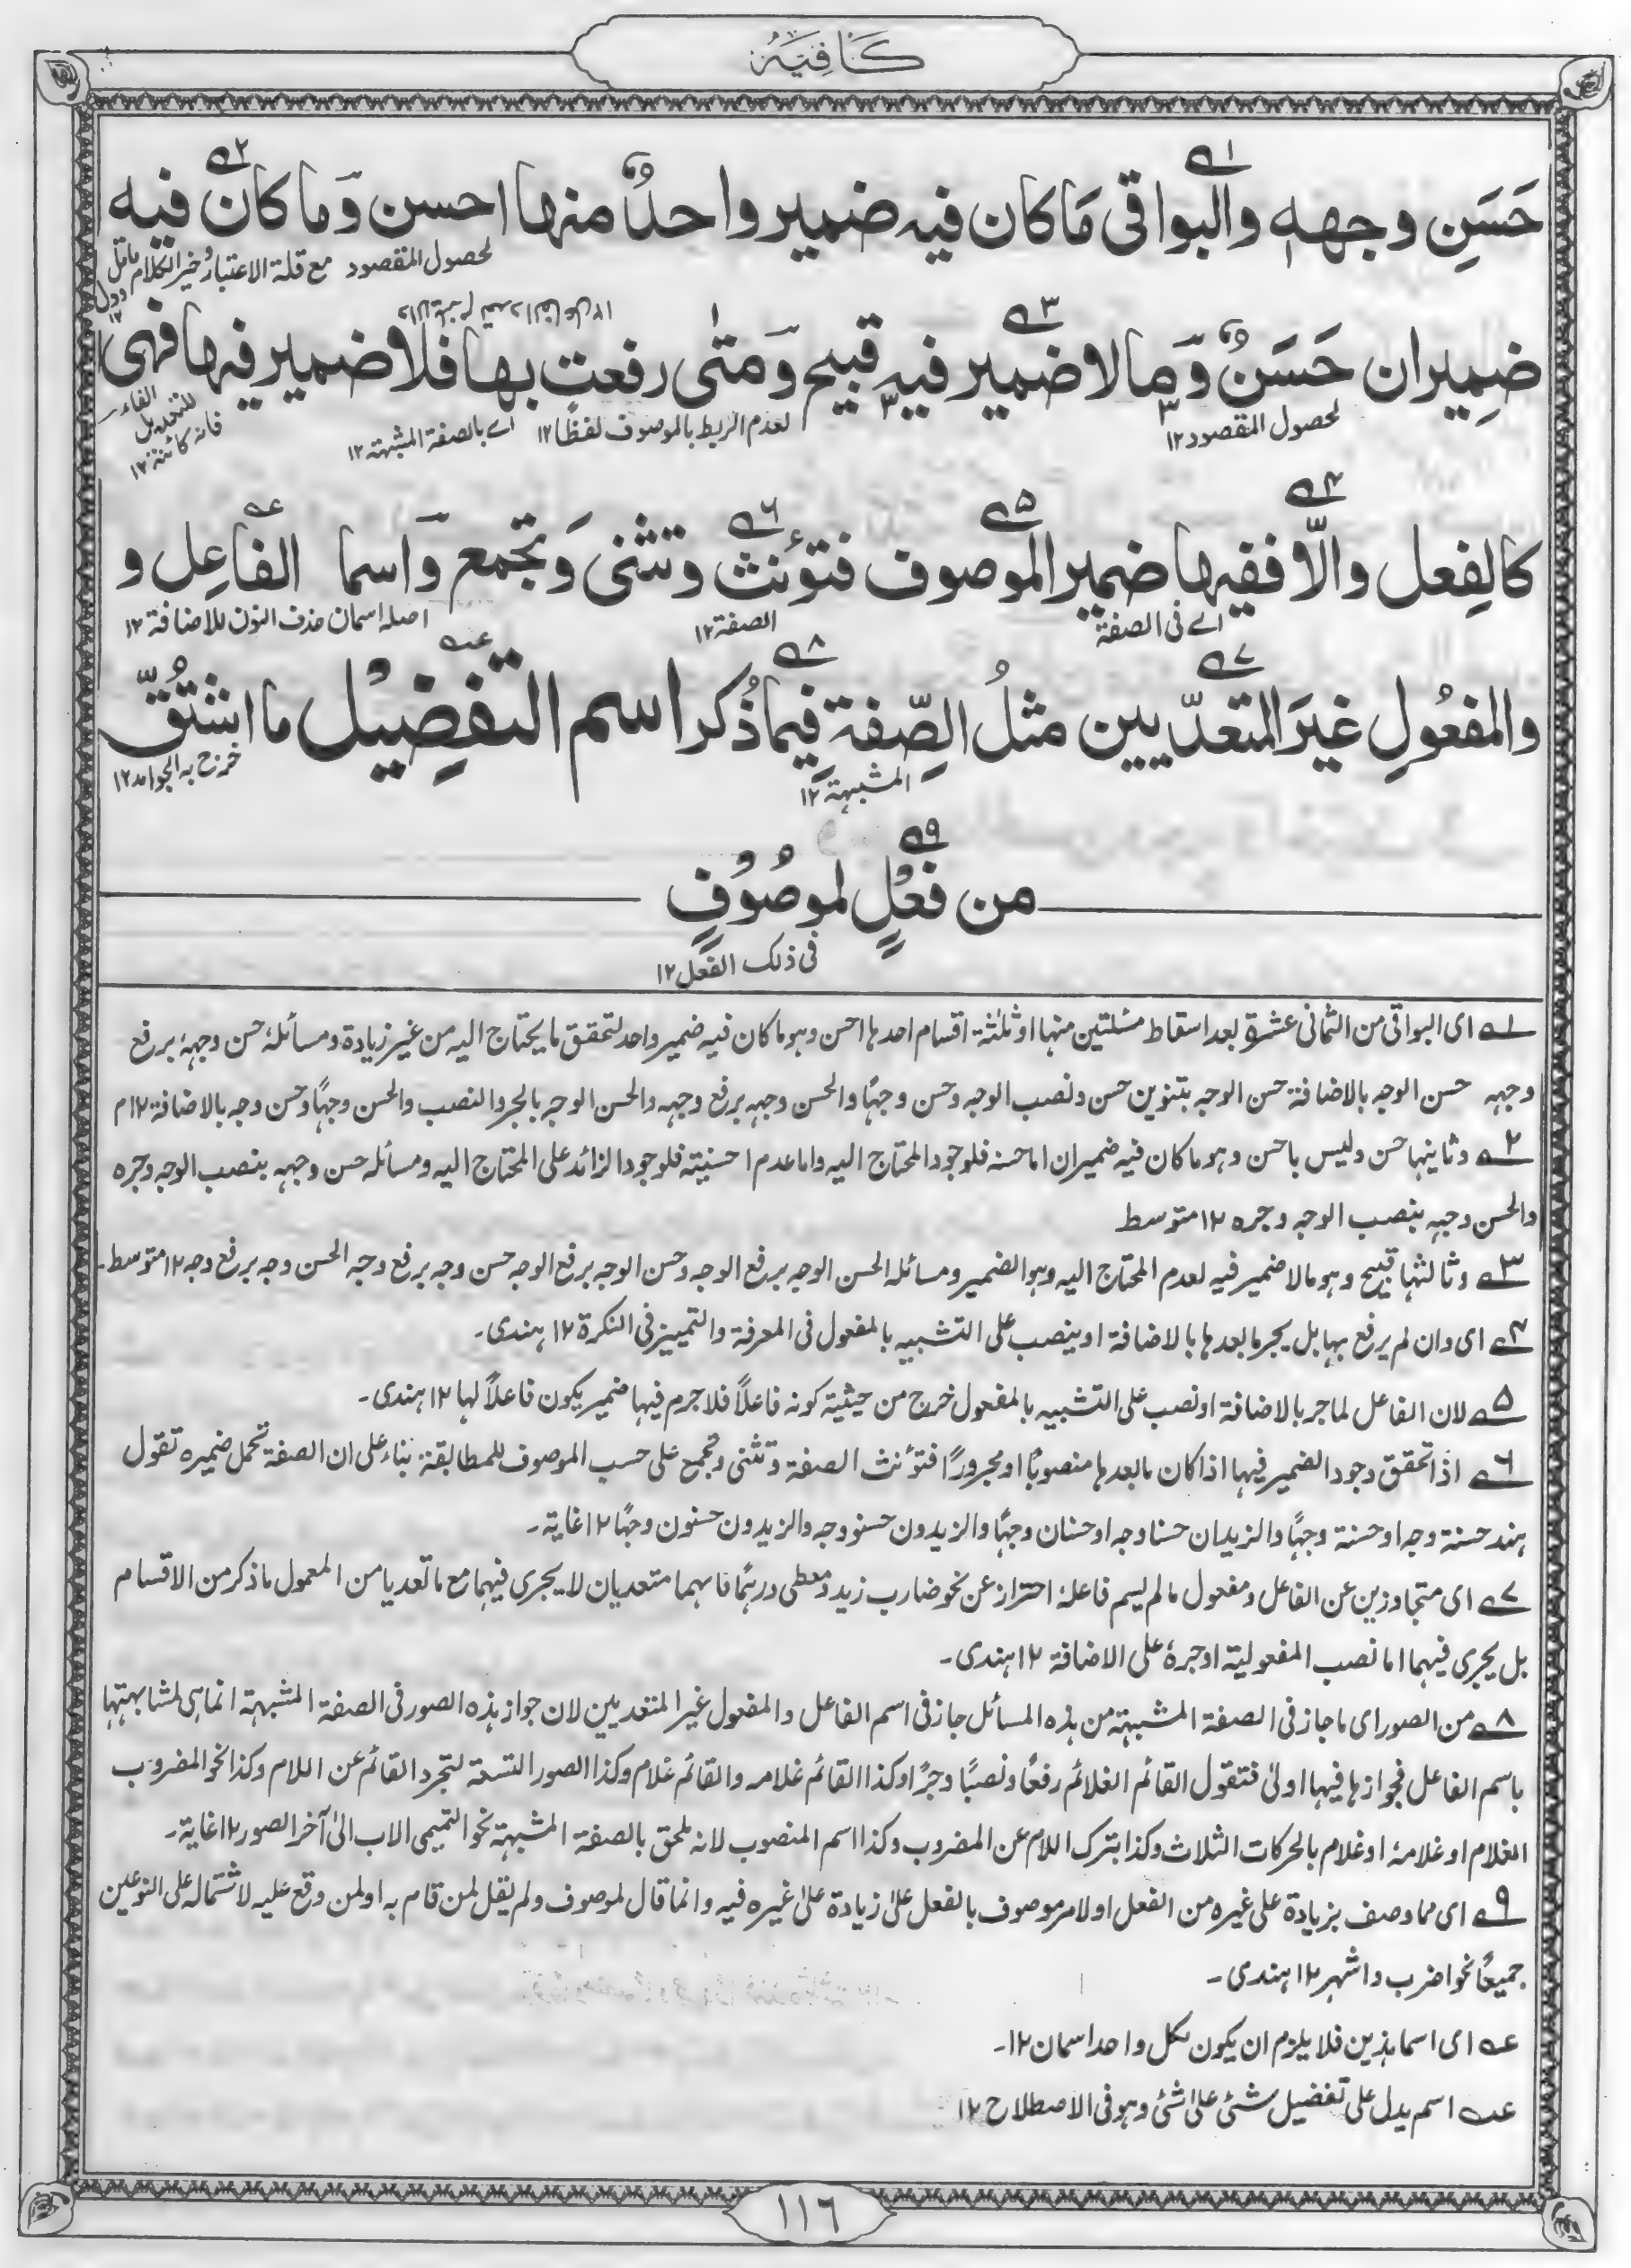 كَافِيَه
حَسَنِ وجهِه والبواقى مَا كان فيه ضمير واحدٌ منها احسن وَما كان فيه
لحصول المقصود مع قلة الاعتبار وخير الكلام ماقل ودل ١٢
ضِميران حَسَنٌ وَما لا ضمير فيه قبيح وَمَتٰى رفعت بها فلا ضمير فيها فهى
لحصول المقصود ١٢ لعدم الربط بالموصوف لفظًا ١٢ اے بالصفة المشبهة ١٢ الفاء للتعليل فانه كائنة ١٢
كالفِعل والّا ففيها ضمير الموصوف فتؤنث وتثنى وَتجمع وَاسما الفاعِل و
اے فى الصفة الصفة ١٢ اصله اسمان حذف النون للاضافة ١٢
والمفعُولِ غيرَ المتعدّيين مثلُ الصِّفةِ فِيما ذُكر اسم التفضِيْل ما اشتُقّ
المشبهة ١٢ خرج به الجوامد ١٢
من فعْلٍ لموصُوْفٍ
فى ذلك الفعل ١٢
١ے اى البواقى من الثمانى عشرة بعد اسقاط مسئلتين منها او ثلثة اقسام احدها احسن وهو ما كان فيه ضمير واحد لتحقق ما يحتاج اليه من غير زيادة ومسائلهٗ حسن وجههٗ برفع
وجهه حسن الوجه بالاضافة حسن الوجه بتنوين حسن ونصب الوجه وحسن وجهًا والحسن وجهه برفع وجهه والحسن الوجه بالجر والنصب والحسن وجهًا وحسن وجه بالاضافة ١٢م
٢ے وثانيها حسن وليس باحسن وهو ما كان فيه ضميران اما حسنه فلوجود المحتاج اليه واما عدم احسنيته فلوجود الزائد على المحتاج اليه ومسائله حسن وجهه بنصب الوجه وجره
والحسن وجهه بنصب الوجه وجره ١٢ متوسط
٣ے وثالثها قبيح وهو مالا ضمير فيه لعدم المحتاج اليه وهو الضمير ومسائله الحسن الوجه برفع الوجه وحسن الوجه برفع الوجه حسن وجه برفع وجه الحسن وجه برفع وجه ١٢ متوسط۔
٤ے اى وان لم يرفع بها بل يجر مابعدها بالاضافة او ينصب على التشبيه بالمفعول فى المعرفة والتمييز فى النكرة ١٢ هندى۔
٥ے لان الفاعل لما جر بالاضافة او نصب على التشبيه بالمفعول خرج من حيثية كونه فاعلاً فلا جرم فيها ضمير يكون فاعلاً لها ١٢ هندى۔
٦ے اذا تحقق وجود الضمير فيها اذا كان مابعدها منصوبًا او مجرورًا فتؤنث الصفة وتثنى وتجمع على حسب الموصوف للمطابقة بناء على ان الصفة تحمل ضميره تقول
هند حسنة وجه او حسنة وجهًا والزيدان حسنا وجه او حسنان وجهًا والزيدون حسنو وجه والزيدون حسنون وجهًا ١٢ غاية۔
٧ے اى متجاوزين عن الفاعل ومفعول مالم يسم فاعلهٗ احتراز عن نحو ضارب زيد ومعطى درهمًا فانهما متعديان لا يجرى فيهما مع ما تعديا من المعمول ماذكر من الاقسام
بل يجرى فيهما اما نصب المفعولية او جرهٗ على الاضافة ١٢ هندى۔
٨ے من الصور اى ما جاز فى الصفة المشبهة من هذه المسائل جاز فى اسم الفاعل والمفعول غير المتعديين لان جواز هذه الصور فى الصفة المشبهة انما هى لمشابهتها
باسم الفاعل فجوازها فيها اولىٰ فتقول القائم الغلائم رفعًا ونصبًا وجرًا وكذا القائم غلامه والقائم غلام وكذا الصور التسعة لتجرد القائم عن اللام وكذا نحو المضروب
الغلام او غلامهٗ او غلام بالحركات الثلاث وكذا بترك اللام عن المضروب وكذا اسم المنصوب لانه ملحق بالصفة المشبهة نحو التميمى الاب الىٰ آخر الصور ١٢ غاية۔
٩ے اى مما وصف بزيادة على غيره من الفعل او لامر موصوف بالفعل علىٰ زيادة علىٰ غيره فيه وانما قال لموصوف ولم يقل لمن قام به او لمن وقع عليه لاشتماله على النوعين
جميعًا نحو اضرب واشهر ١٢ هندى۔
عـہ اى اسما هذين فلا يلزم ان يكون لكل واحد اسمان ١٢۔
عـہ اسم يدل على تفضيل شئى علىٰ شئى وهو فى الاصطلاح ١٢
١١٦